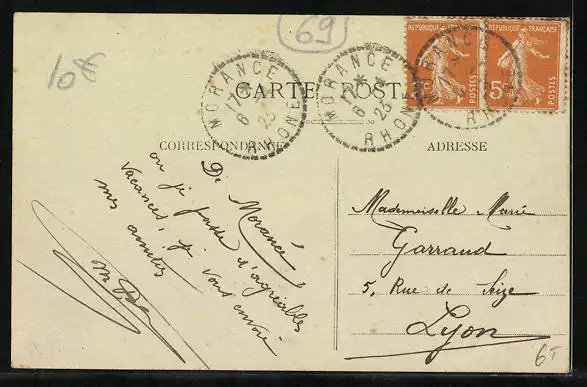 69
10€
REPUBLIQUE FRANÇAISE
POSTES
REPUBLIQUE FRANÇAISE
5c POSTES
MORANCE
17 - 6 23
RHONE
MORANCE
17 6 23
RHONE
MORANCE
RHONE
CARTE POSTALE
CORRESPONDANCE
ADRESSE
De Morancé,
où je passe d'agréables
vacances, je vous envoie
mes amitiés
Mademoiselle Marie
Garraud
5, Rue de Sèze
Lyon
6T